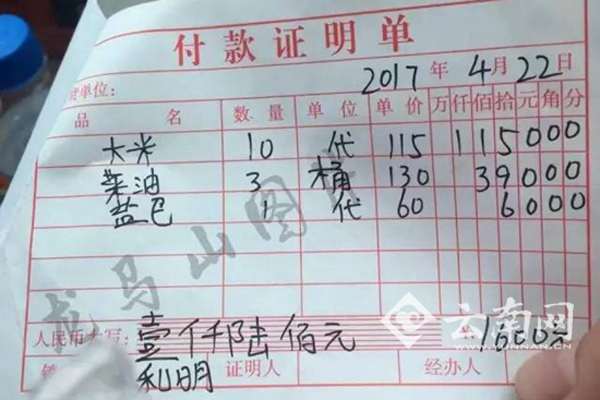 付款证明单
货单位： 2017 年 4 月 22 日
品 名 数 量 单 位 单 价 万 仟 佰 拾 元 角 分
大米 10 代 115 1 1 5 0 0 0
菜油 3 桶 130 3 9 0 0 0
盐巴 1 代 60 6 0 0 0
龙马山图
人民币大写： 壹仟陆佰元 1600元
利明 证明人 经办人
云南网
YUNNAN.CN